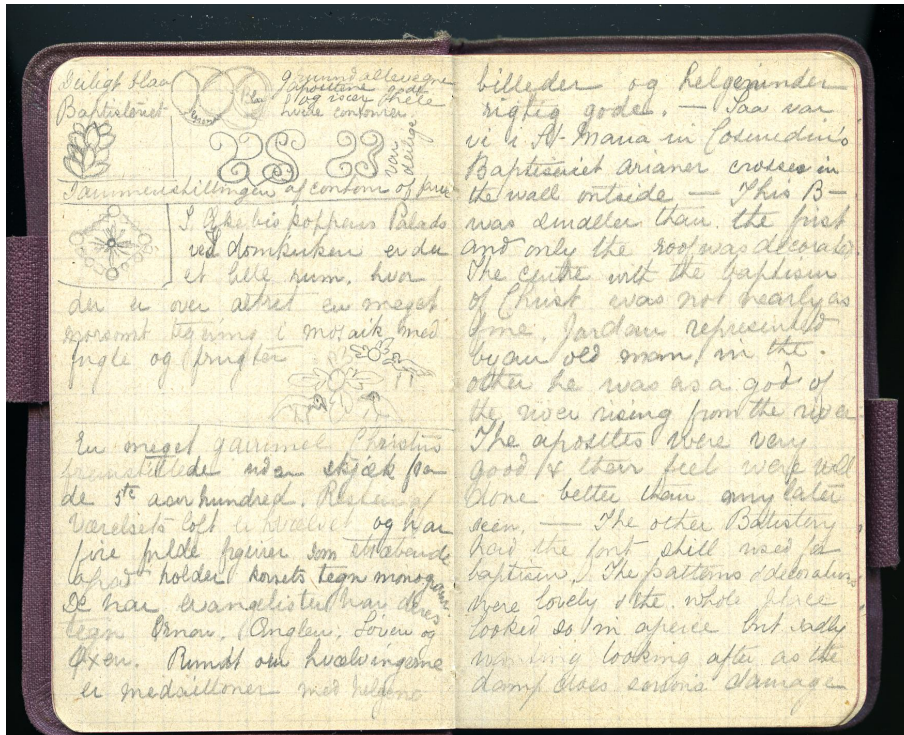 Deiligt blaa
Baptisteriet
Blaa
grund allevegne
apostlene gode
og især
hvide contourer
var deilige
Sammenstillingen af contour of
I Ærkebiskoppens Palads
ved domkirken er der
et lille rum, hvor
der er over altret en meget
morsomt tegning i mosaik med
fugle og frugter
En meget gammel Christus
fremstillede uden skjæk fra
de 5te aarhundred. Resten af
Værelsets loft er hvælvet og har
fire fulde figurer som
holder korsets tegn monogram
De har evangelister har deres
tegn Ørnen, Englen, Løven og
Oxen. Rundt om hvælvingerne
er medailloner med helgene
billeder og helgeninder
rigtig gode. — Saa var
vi i St Maria in Cosmedin's
Baptiseriet arianer crosses in
the wall outside — This B—
was smaller than the first
and only the roof was decorated.
The centre with the baptism
of Christ was not nearly as
fine. Jordan represented
by an old man, in the
other he was as a god of
the river rising from the river
The apostles were very
good & their feet were well
done better than any later
seen. — The other Batistery
had the font still used for
baptism. The patterns & decorations
were lovely & the whole place
looked so in apiece but sadly
wanting looking after as the
damp does serious damage